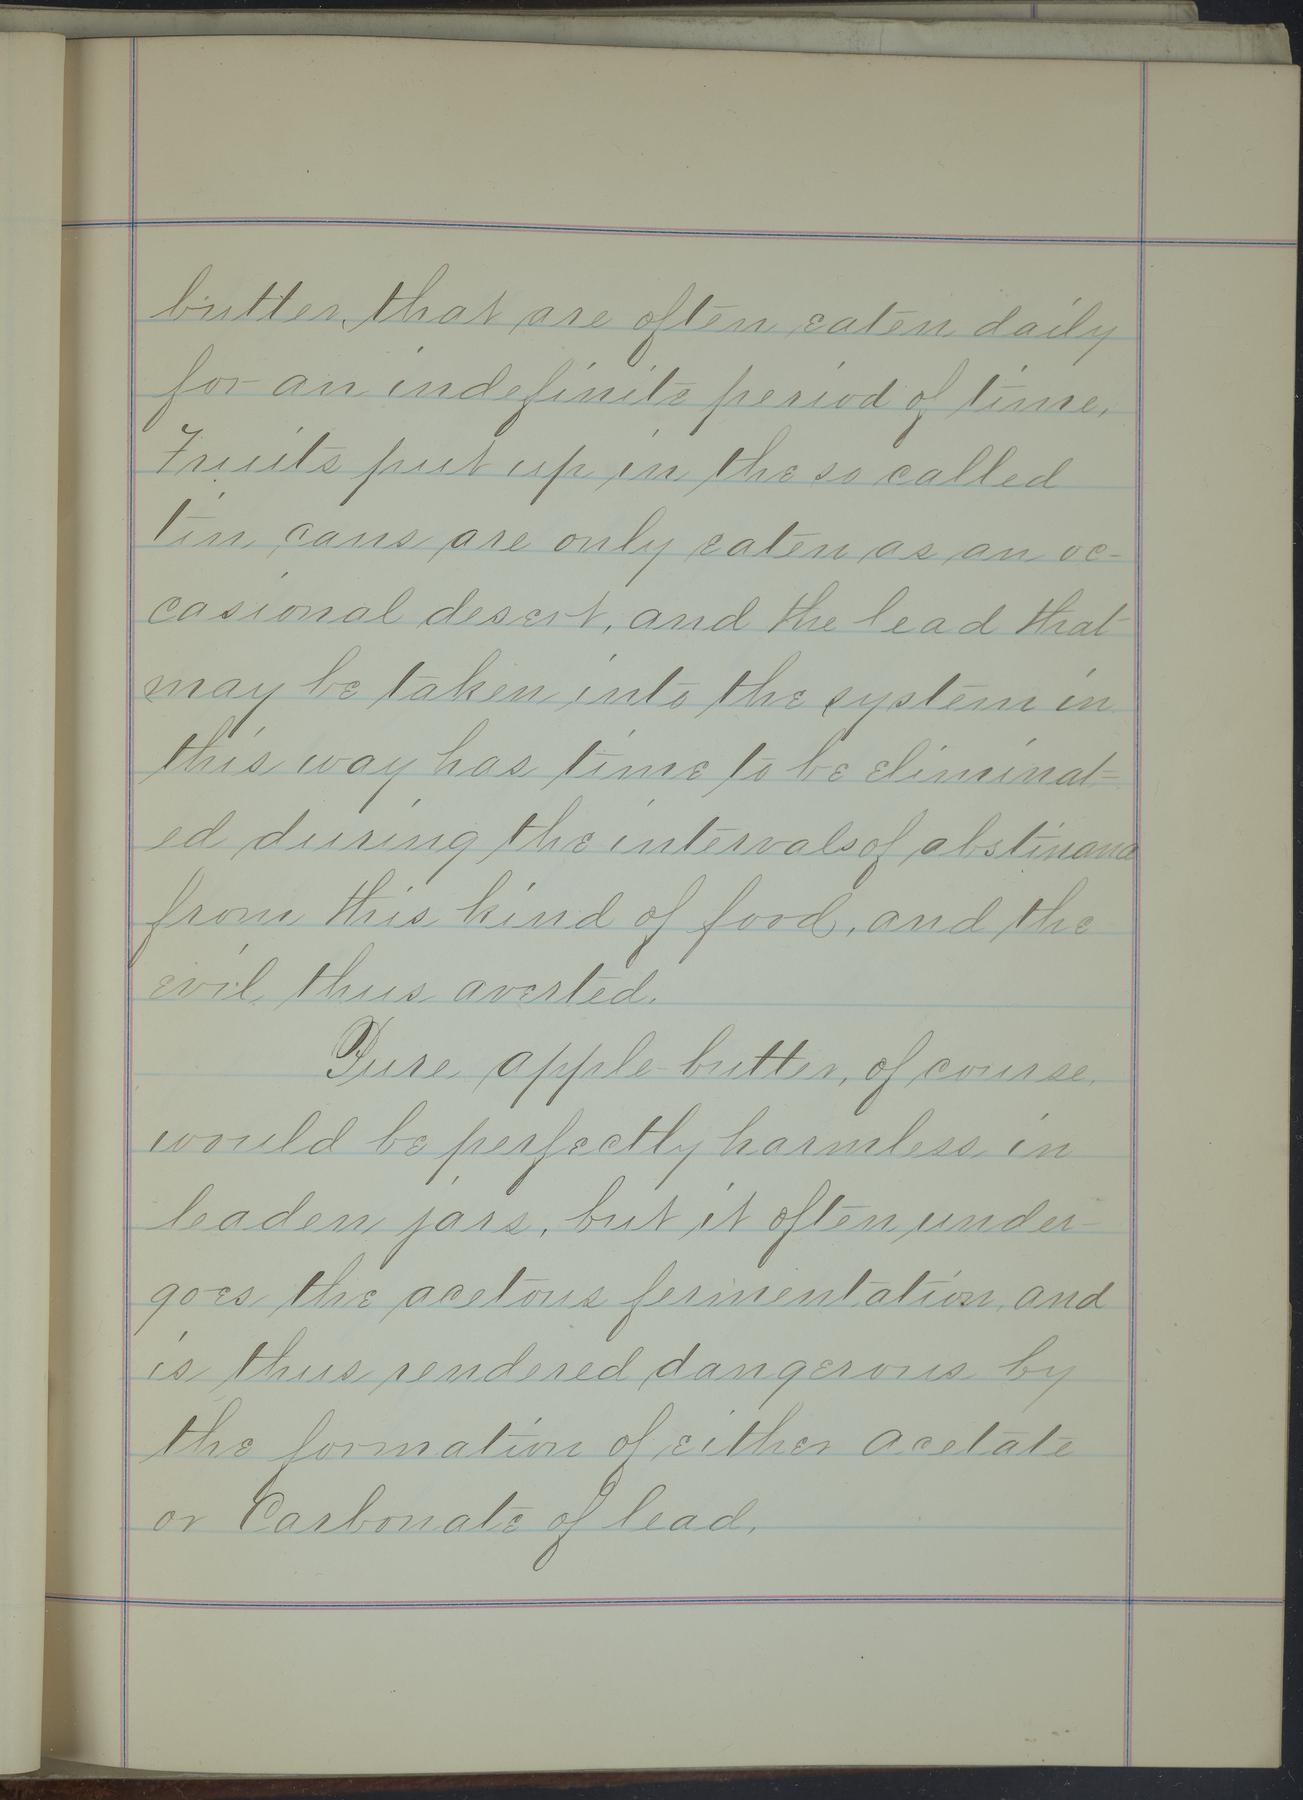 butter, that are often eaten daily
for an indefinite period of time.
Fruits put up in the so called
tin cans are only eaten as an oc-
casional desert, and the lead that
may be taken into the system in
this way has time to be eliminat=
ed during the intervals of abstinance
from this kind of food, and the
evil thus averted.
Pure apple-butter, of course,
would be perfectly harmless in
leaden jars, but it often under-
goes the acetous fermentation, and
is thus rendered dangerous by
the formation of either acetate
or Carbonate of lead.